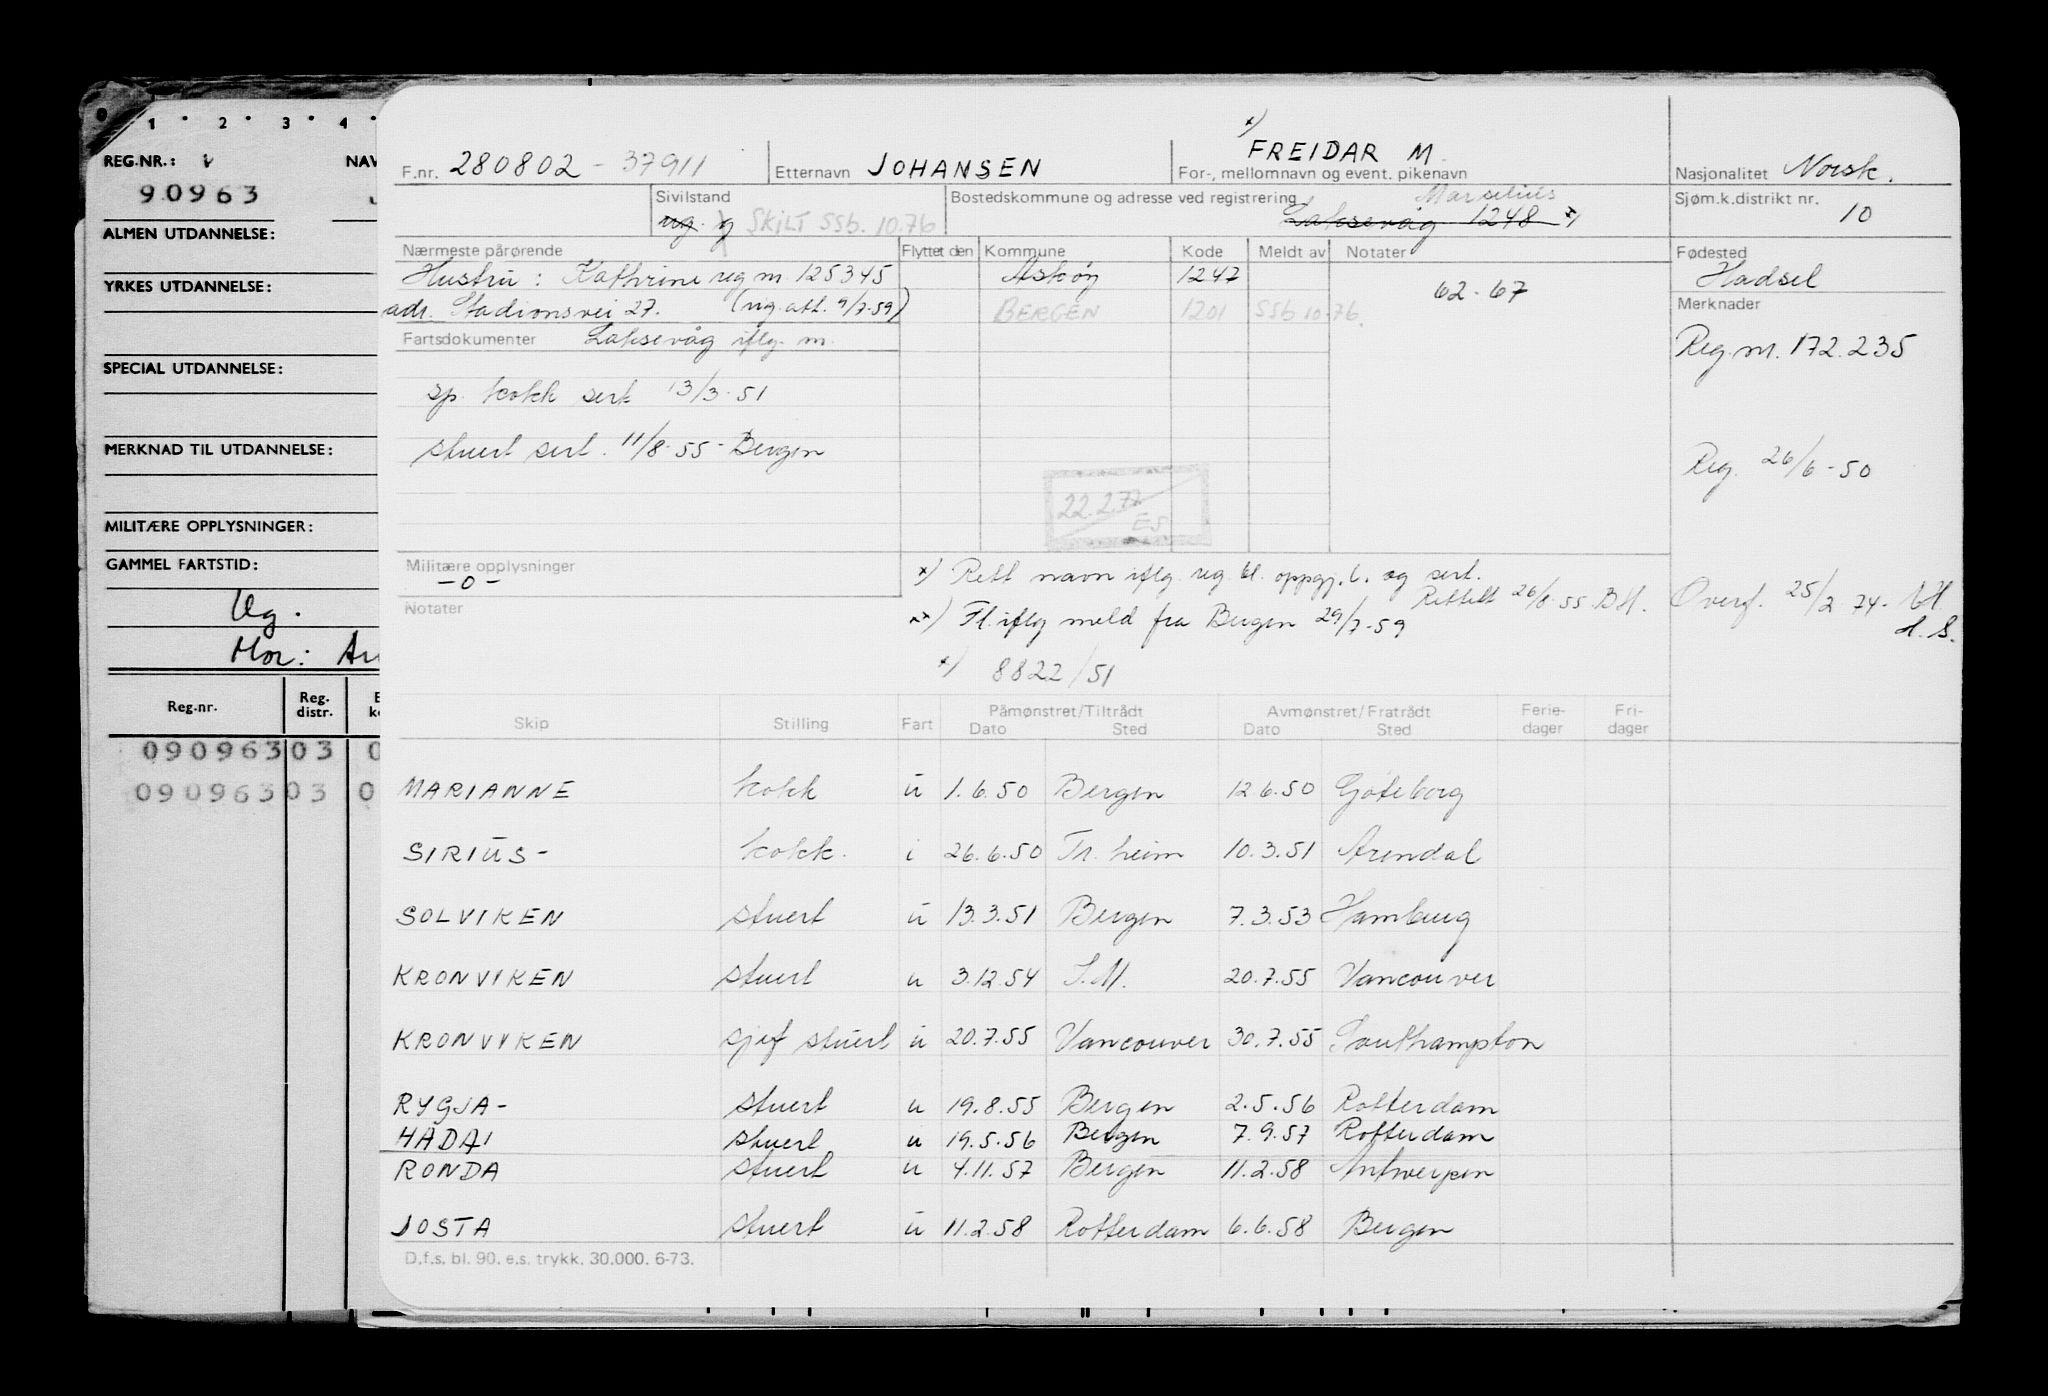 1 · 2 · 3 · 4 ·
REG.NR.: NAV
90963
ALMEN UTDANNELSE:
YRKES UTDANNELSE:
SPECIAL UTDANNELSE:
MERKNAD TIL UTDANNELSE:
MILITÆRE OPPLYSNINGER:
GAMMEL FARTSTID:
Ug.
Mor:
Reg.nr. Reg. distr.
090963 03 0
090963 03 0
F.nr. 280802 - 37911 Etternavn JOHANSEN x) FREIDAR M. For-, mellomnavn og event. pikenavn Nasjonalitet Norsk.
Sivilstand ug. g SKILT SSb. 10.76 Bostedskommune og adresse ved registrering Marselius Laksevåg 1248 x) Sjøm.k.distrikt nr. 10
Nærmeste pårørende Flyttet den Kommune Kode Meldt av Notater Fødested
Hustru: Kathrine reg nr. 125345 Askøy 1247 62-67 Hadsel
adr. Stadionsvei 27. (rig. att. 9/7-59) BERGEN 1201 SSb 10-76. Merknader
Fartsdokumenter Laksevåg iflg. m. Reg.nr. 172.235
sp. kokk sert 13/3-51
stuert sert. 11/8-55 - Bergen Reg. 26/6-50
22.2.77 ES
Militære opplysninger
-0-
x) Rett navn iflg. reg. bl. oppgj. l. og sert. Rettelt 26/8-55 BH.
Overf. 25/2 74-
Notater
xx) Fl. iflg meld fra Bergen 29/7-59
x) 8822/51
Skip Stilling Fart Påmønstret/Tiltrådt Dato Sted Avmønstret/Fratrådt Dato Sted Ferie-dager Fri-dager
MARIANNE kokk u 1.6.50 Bergen 12.6.50 Göteborg
SIRIUS- kokk. i 26.6.50 Tr.heim 10.3.51 Arendal
SOLVIKEN stuert u 13.3.51 Bergen 7.3.53 Hamburg
KRONVIKEN stuert u 3.12.54 20.7.55 Vancouver
KRONVIKEN sjef stuert u 20.7.55 Vancouver 30.7.55 Southampton
RYGJA- stuert u 19.8.55 Bergen 2.5.56 Rotterdam
HADAI stuert u 19.5.56 Bergen 7.9.57 Rotterdam
RONDA stuert u 4.11.57 Bergen 11.2.58 Antwerpen
JOSTA stuert u 11.2.58 Rotterdam 6.6.58 Bergen
D.f.s. bl. 90. e.s. trykk. 30.000. 6-73.